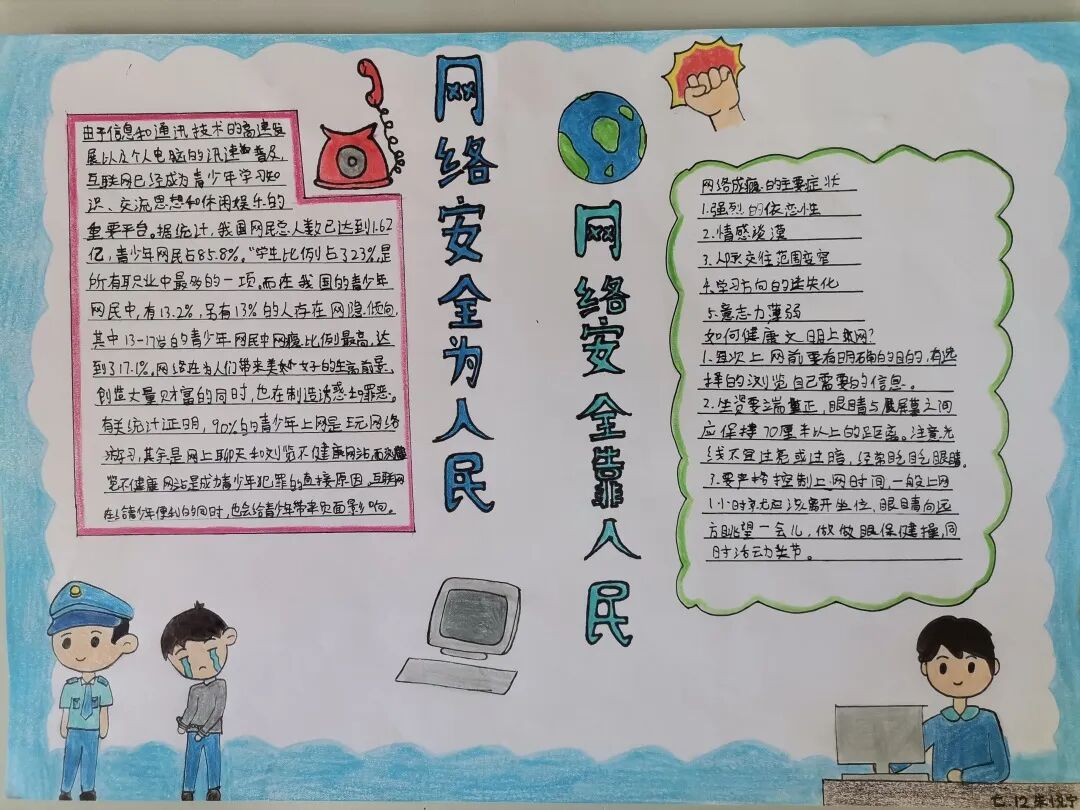 网络安全为人民
网络安全靠人民
由于信息和通讯技术的高速发
展以及个人电脑的汛速普及,
互联网已经成为青少年学习知
识、交流思想和休闲娱乐的
重要平台。据统计,我国网民总人数已达到1.62
亿,青少年网民占85.8%。"学生比例占323%,是
所有职业中最多的一项。而在我国的青少年
网民中,有13.2%,另有13%的人存在网隐倾向,
其中13-17岁的青少年网民中网瘾比例最高,达
到了17.1%。网络在为人们带来美妙女子的生活前景、
创造大量财富的同时,也在制造诱惑和罪恶。
有关统计证明,90%的青少年上网是玩网络
游习,其余是网上聊天和浏览不健康网站,而浏
览不健康网站是成为青少年犯罪的直接原因,互联网
在给青少年便利的同时,也会给青少年带来负面影响。
网络成瘾的主要症状
1.强烈的依恋性
2.情感淡漠
3.人际交往范围变窄
4.学习方向的迷失化
5.意志力薄弱
如何健康文明上网?
1.每次上网前要有明确的目的,有选
择的浏览自己需要的信息。
2.坐姿要端正,眼睛与屏幕之间
应保持70厘米以上的距离。注意光
线不宜过亮或过暗,经常眨眨眼睛。
3.要严格控制上网时间,一般上网
1小时就应该离开坐位,眼睛向远
方眺望一会儿,做做眼保健操,同
时活动关节。